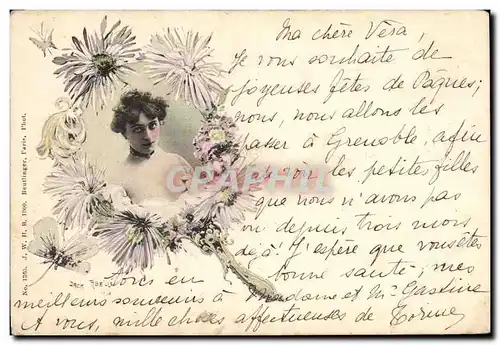 Ma chère Véra,
Je vous souhaite de
joyeuses fêtes de Paques;
nous, nous allons les
passer à Grenoble, afin
de voir les petites filles
que nous n'avons pas
vu depuis trois mois
déjà. J'espère que vous êtes
en bonne santé; mes
meilleurs souvenirs à Madame et Mr Gastine
A vous, mille choses affectueuses de
No. 1395. J. W. H. B. 1900. Reutlinger, Paris, Phot.
delcampe.net